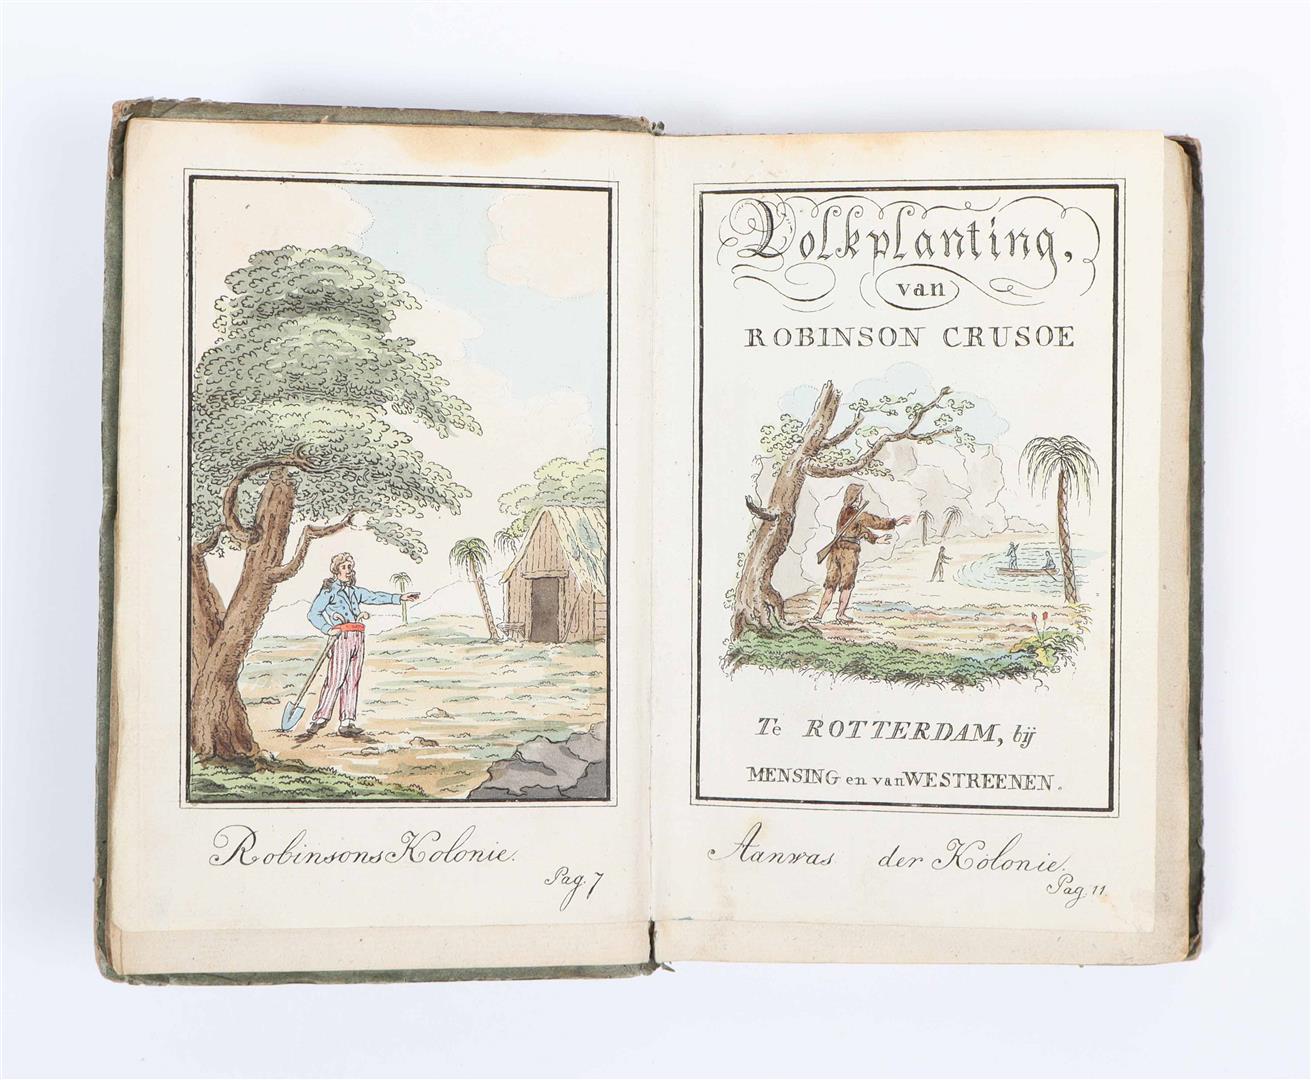 Robinsons Kolonie.
Pag. 7
Volkplanting,
van
ROBINSON CRUSOE
Te ROTTERDAM, bij
MENSING en van WESTREENEN.
Aanwas der Kolonie.
Pag. 11